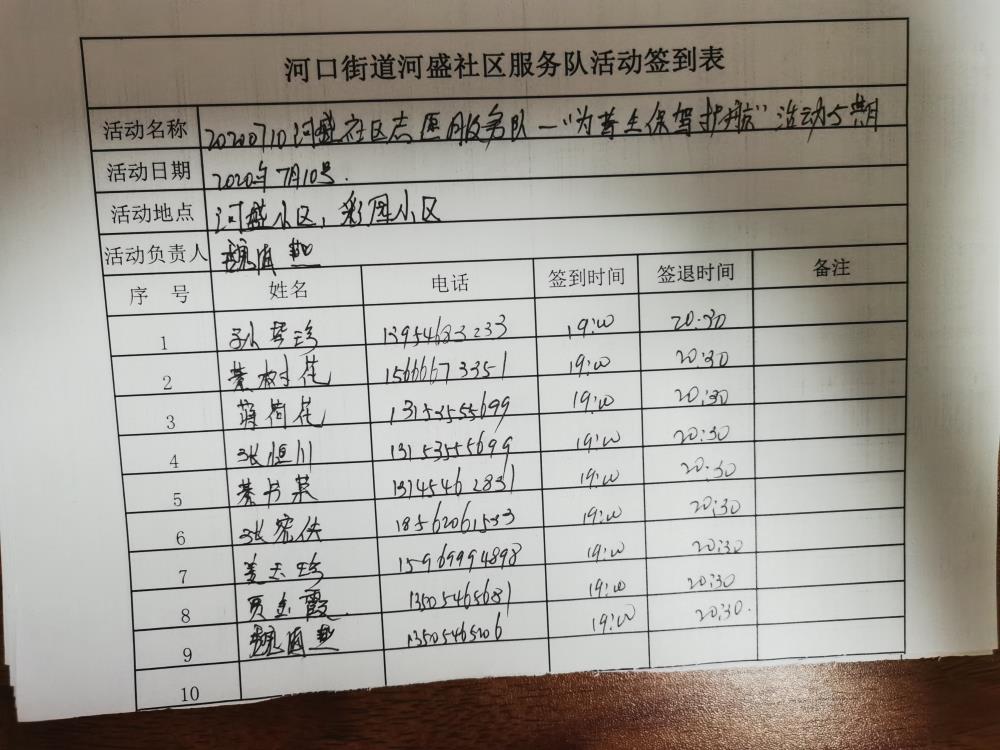 河口街道河盛社区服务队活动签到表
活动名称 20200710河盛社区志愿服务队—"为养生保驾护航"活动5期
活动日期 2020年7月10号.
活动地点 河盛小区、彩图小区
活动负责人 魏海燕
序 号 姓名 电话 签到时间 签退时间 备注
1 孙梦珍 13954683233 19:00 20:30
2 树花 15666673351 19:00 20:30
3 薄荷花 13153555699 19:00 20:30
4 张恒川 13153555699 19:00 20:30
5 书菜 13145462831 19:00 20:30
6 张 18562061533 19:00 20:30
7 姜玉珍 15969994898 19:00 20:30
8 贾玉霞. 13505465681 19:00 20:30
9 魏海燕 13505465206 19:00 20:30.
10